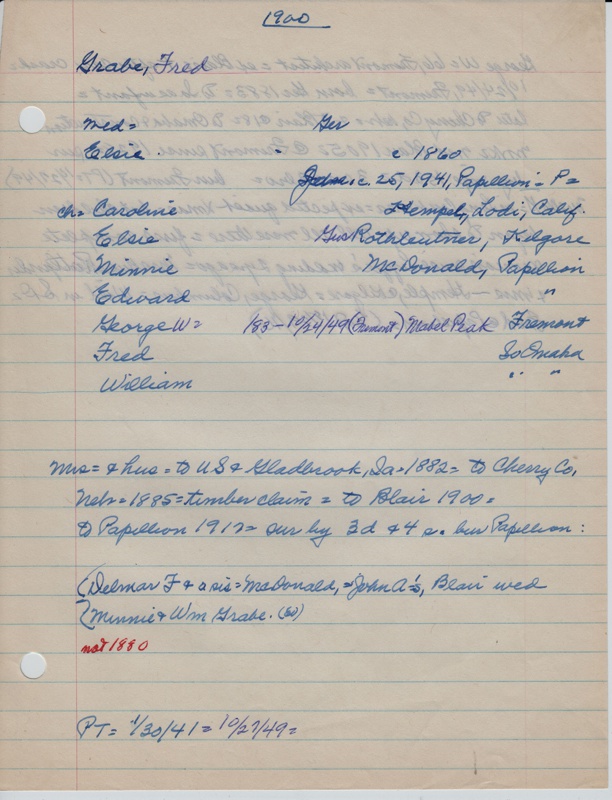 1900
Grabe, Fred
med= Ger
Elsie c 1860
Jan. c. 25, 1941, Papillion = P=
ch= Caroline Hempel, Lodi, Calif.
Elsie Gus Rothleutner, Kilgore
Minnie McDonald, Papillion
Edward "
George W= /83 - 10/24/49 (Fremont) Mabel Peak Fremont
Fred So Omaha
William " "
Mrs= & hus = to US & Gladbrook, Ia = 1882 = to Cherry Co,
Nebr = 1885 = timber claim = to Blair 1900 =
to Papillion 1912 = sur by 3d & 4 s. bur Papillion :
(Delmar F & a sis = McDonald, = John A's, Blair wed
Minnie & Wm Grabe.
not 1880
PT = 1/30/41 = 10/27/49 =